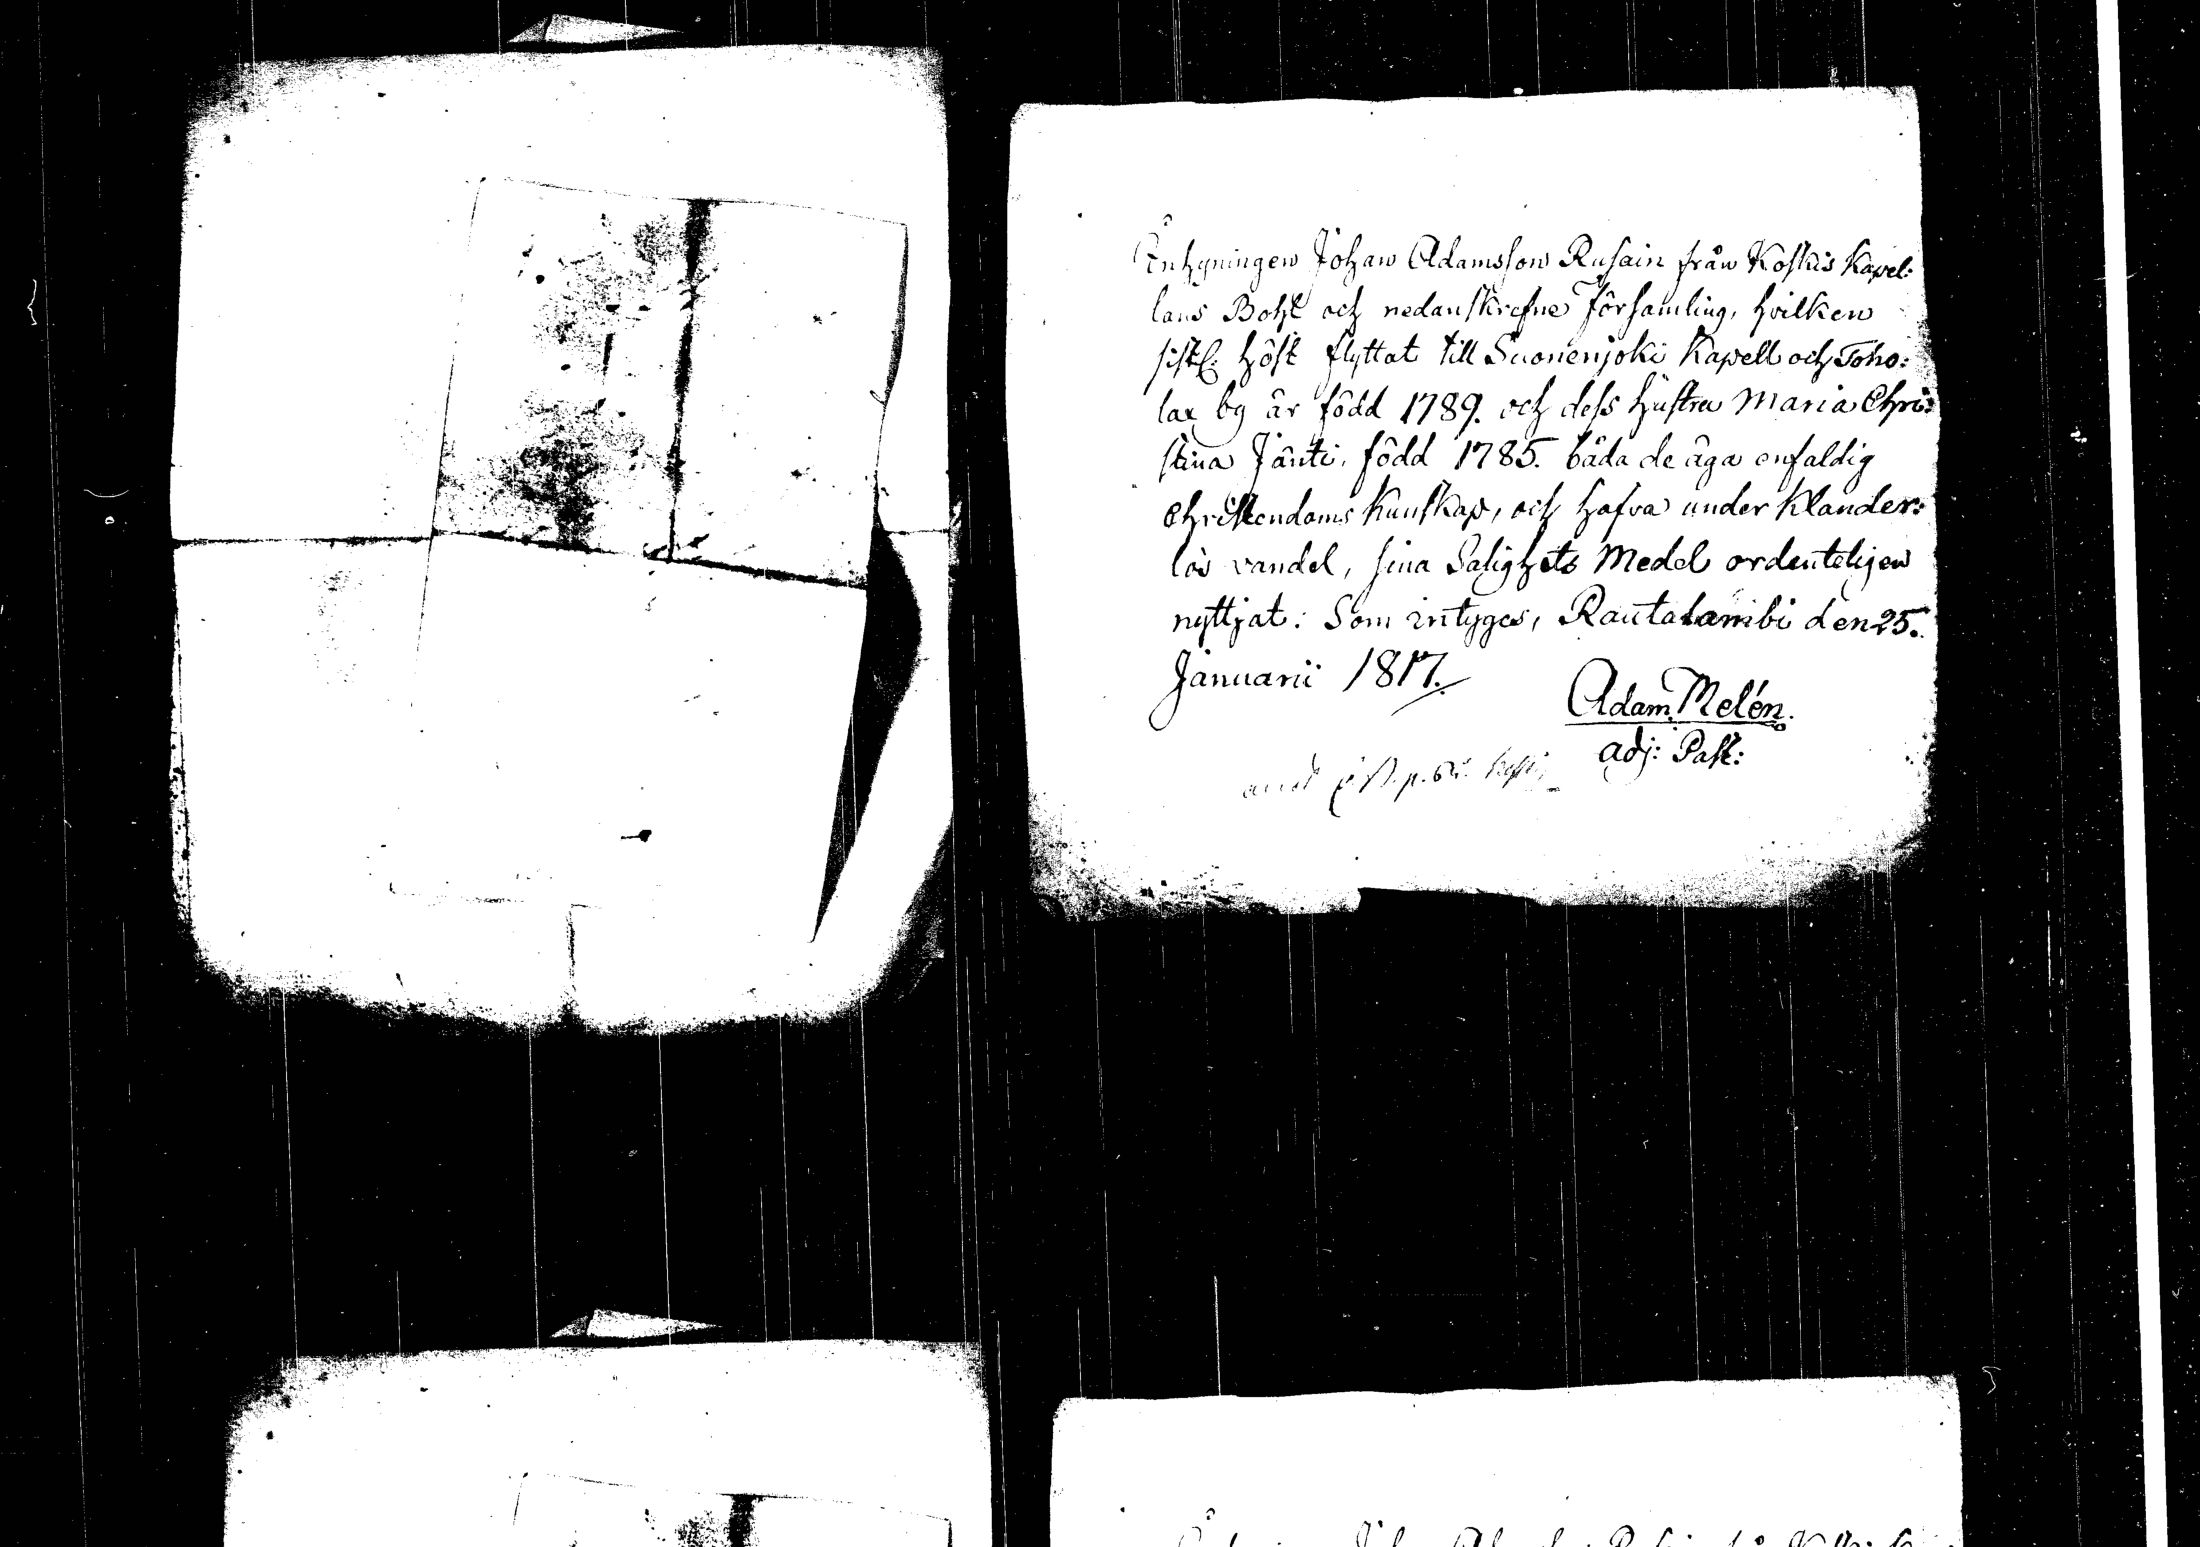 Inhysningen Johan Adamsson Rusain från Koskis Kapel:
lans Bohl och nedanskrefne Församling, hvilken
sistl: höst flyttat till Suonenjoki Kapell och Toho:
lax by är född 1789. och dess hustru Maria Chri:
stina Jänti, född 1785. båda de äga enfaldig
Christendoms kunskap, och hafva under klander:
lös vandel, sina Salighets Medel ordenteligen
nyttjat: Som intyges, Rautalambi den 25.
Januarii 1817.
Adam Melén.
adj: Past: